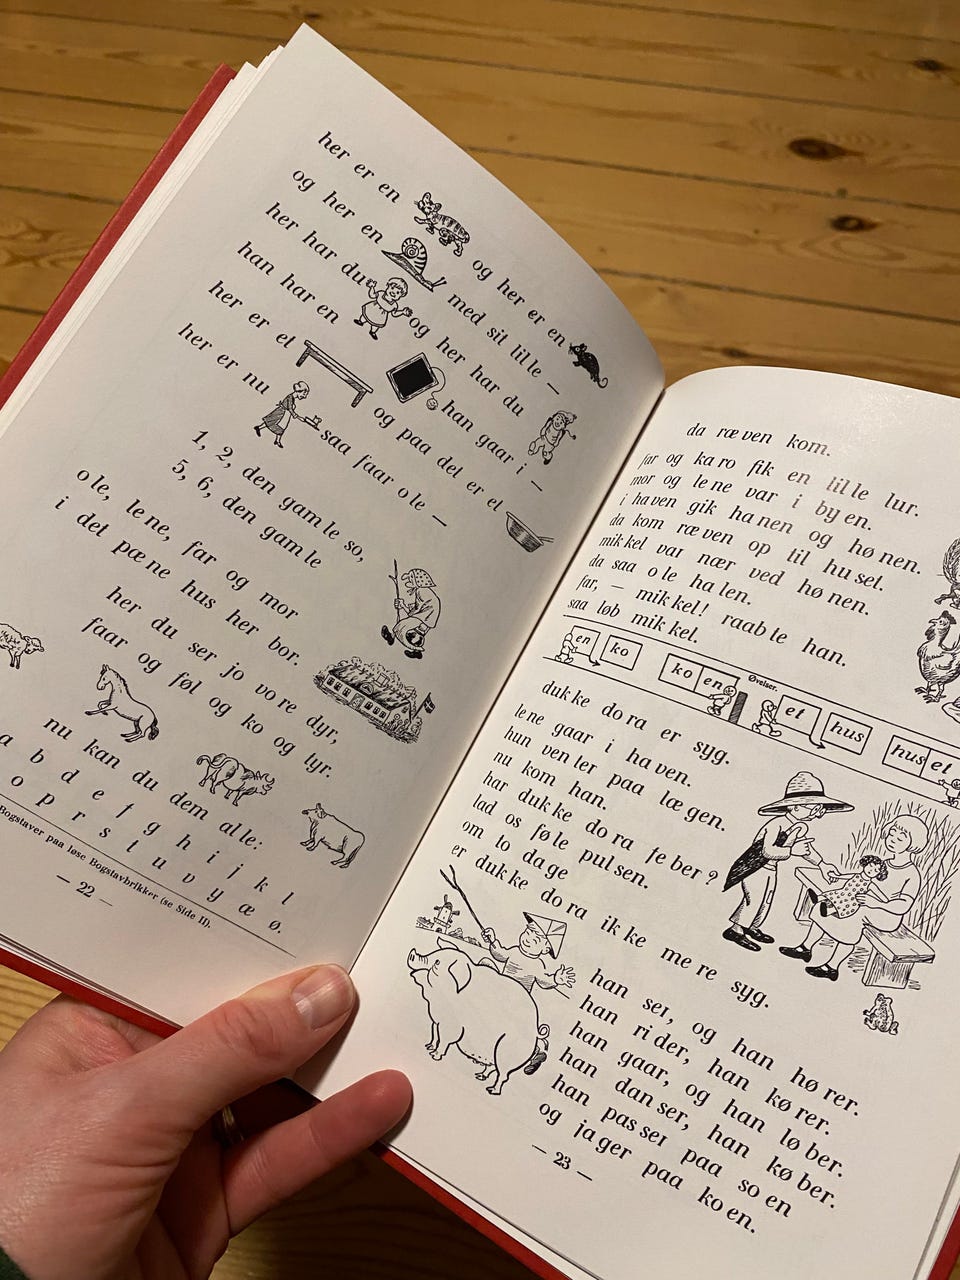 her er en og her er en
og her en med sit lil le –
her har du og her har du
han har en han gaar i –
her er et og paa det er et
her er nu saa faar o le –
1, 2, den gam le so,
5, 6, den gam le
o le, le ne, far og mor
i det pæ ne hus her bor.
her du ser jo vo re dyr,
faar og føl og ko og tyr.
nu kan du dem al le:
a b d e f g h i j k l
o p r s t u v y æ ø.
Bogstaver paa løse Bogstavbrikker (se Side II).
— 22 —
da ræ ven kom.
far og ka ro fik en lil le lur.
mor og le ne var i by en.
i ha ven gik ha nen og hø nen.
da kom ræ ven op til hu set.
mik kel var nær ved hø nen.
da saa o le ha len.
far, – mik kel! raab te han.
saa løb mik kel.
Øvelser.
en ko ko en et hus hus et
duk ke do ra er syg.
le ne gaar i ha ven.
hun ven ter paa læ gen.
nu kom han.
har duk ke do ra fe ber?
lad os fø le pul sen.
om to da ge
er duk ke do ra ik ke me re syg.
han ser, og han hø rer.
han ri der, han kø rer.
han gaar, og han lø ber.
han dan ser, han kø ber.
han pas ser paa so en
og ja ger paa ko en.
— 23 —